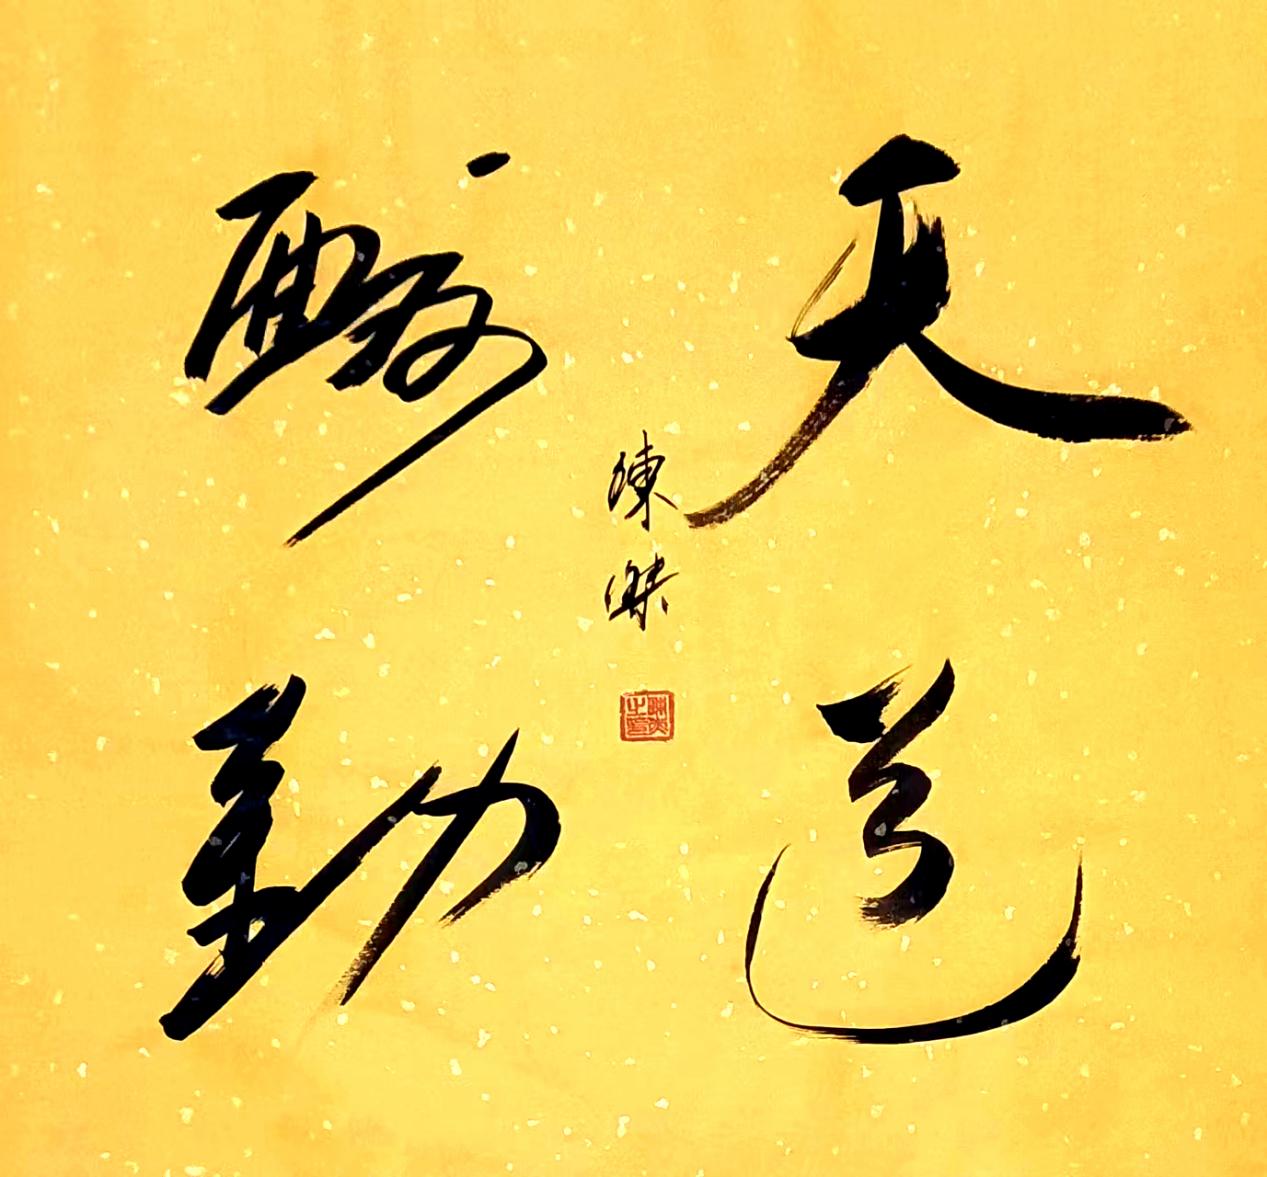 天道
酬勤
陳傑